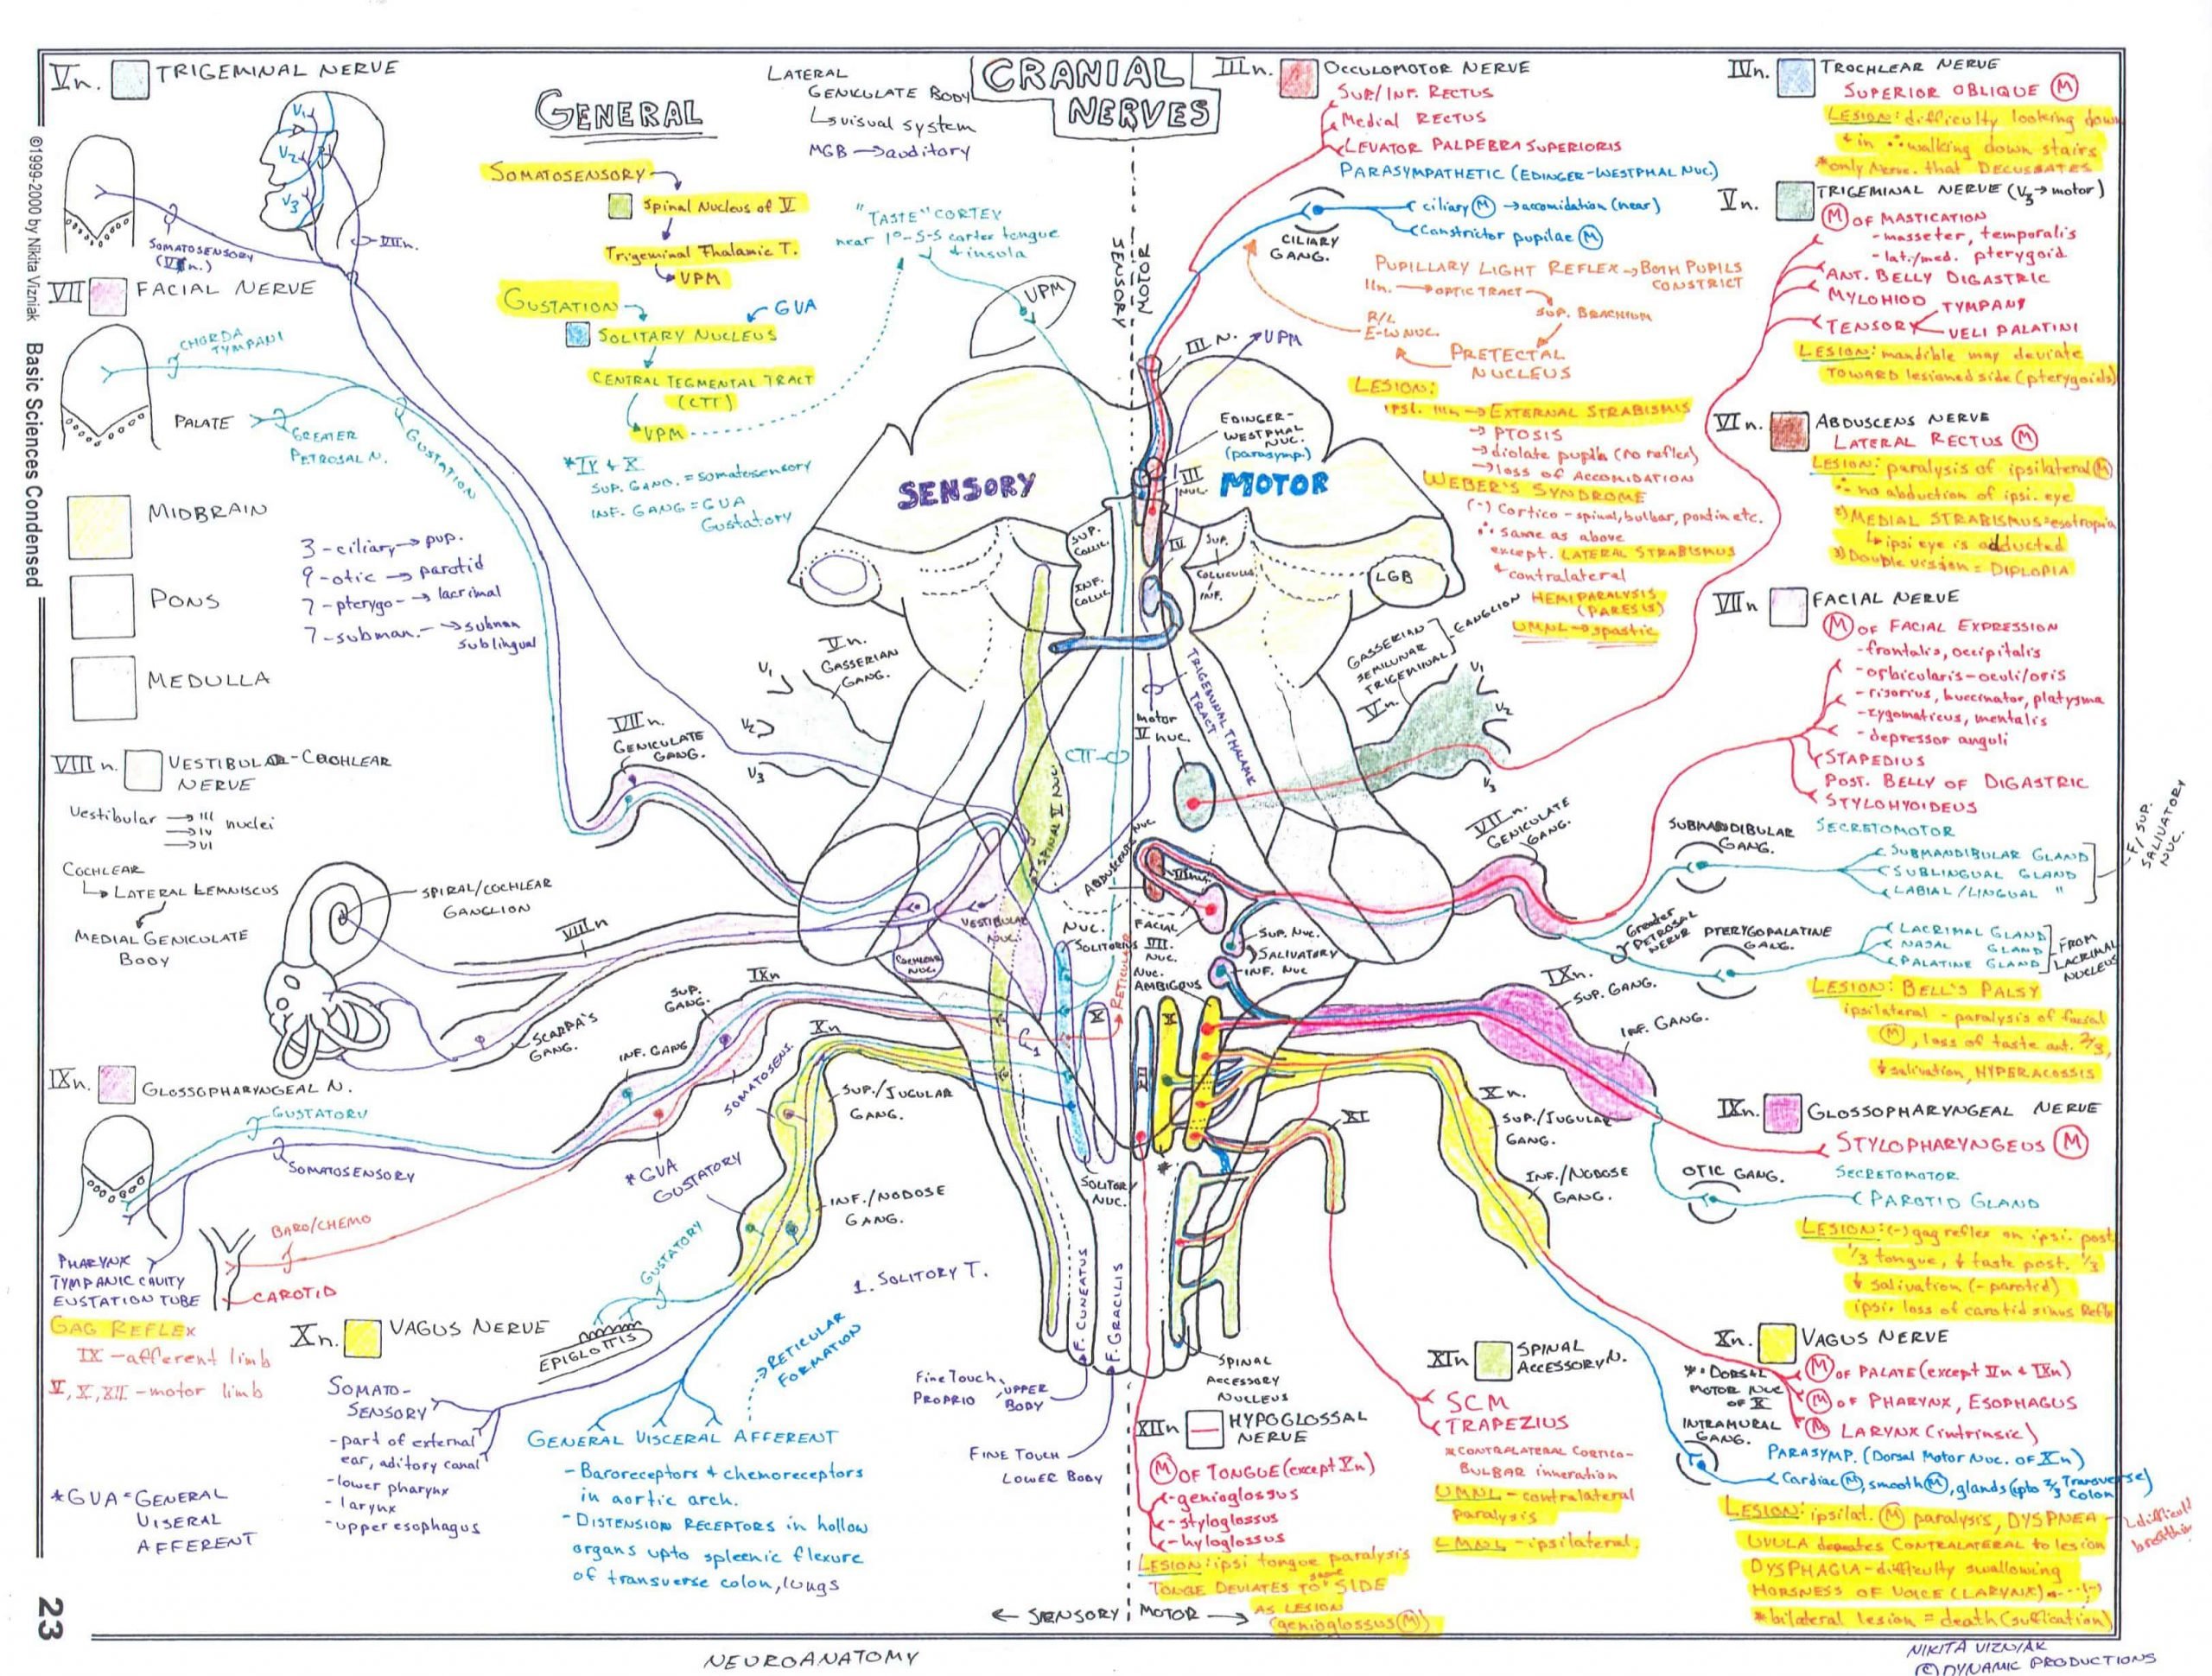 CRANIAL
NERVES
Vn. TRIGEMINAL NERVE
V1
V2
V3
SOMATOSENSORY
VIIn.
VII FACIAL NERVE
CHORDA
TYMPANI
PALATE
GREATER
PETROSAL N.
GUSTATION
MIDBRAIN
PONS
MEDULLA
3-ciliary→pup.
9-otic → parotid
7-pterygo-→ lacrimal
7-subman.-→subman
sublingual
VIIIn. VESTIBULAR-COCHLEAR
NERVE
Vestibular → III nuclei
→ IV
→ VI
COCHLEAR
↳ LATERAL LEMNISCUS
MEDIAL GENICULATE
BODY
SPIRAL/COCHLEAR
GANGLION
VIIIn
SCARPA'S
GANG.
IXn. GLOSSOPHARYNGEAL N.
GUSTATORY
SOMATOSENSORY
BARO/CHEMO
CAROTID
PHARYNX
TYMPANIC CAVITY
EUSTATION TUBE
GAG REFLEX
IX -afferent limb
V, X, XII -motor limb
Xn. VAGUS NERVE
EPIGLOTTIS
SOMATO-
SENSORY
-part of external
ear, aditory canal
-lower pharynx
-larynx
-upper esophagus
*GVA=GENERAL
VISERAL
AFFERENT
GENERAL VISCERAL AFFERENT
-Baroreceptors + chemoreceptors
in aortic arch.
-DISTENSION RECEPTORS in hollow
organs upto spleenic flexure
of transverse colon, lungs
RETICULAR
FORMATION
GENERAL
SOMATOSENSORY
Spinal Nucleus of V
Trigeminal Thalamic T.
VPM
GUSTATION
GVA
SOLITARY NUCLEUS
CENTRAL TEGMENTAL TRACT
(CTT)
VPM
*IX + X
SUP. GANG. = somatosensory
INF. GANG = GVA
Gustatory
LATERAL
GENICULATE BODY
↳visual system
MGB→auditory
"TASTE" CORTEX
near 1°-S-S cortex tongue
+ insula
VPM
SENSORY
MOTOR
SENSORY
MOTOR
III N.
VPM
EDINGER-
WESTPHAL
NUC.
(parasymp.)
III
NUC.
SUP.
COLLIC.
INF.
COLLIC.
IV
SUP.
COLLICULUS
INF.
LGB
Vn.
GASSERIAN
GANG.
V1
V2
V3
VIIn.
GENICULATE
GANG.
CTT
SPINAL V NUC.
motor
V nuc.
TRIGEMINAL THALAMIC
TRACT
GASSERIAN
SEMILUNAR
TRIGEMINAL
GANGLION
Vn.
V1
V2
V3
ABDUSCENS NUC
VESTIBULAR
NUC.
COCHLEAR
NUC.
NUC.
SOLITORIUS
FACIAL
VII
NUC.
SUP. NUC.
SALIVATORY
INF. NUC
NUC.
AMBIGOUS
RETICULAR
X
X
IXn
SUP.
GANG.
INF. GANG
SOMATOSENS.
*GVA
GUSTATORY
Xn
SUP./JUGULAR
GANG.
INF./NODOSE
GANG.
GUSTATORY
1. SOLITORY T.
SOLITORY
NUC.
F. CUNEATUS
F. GRACILIS
Fine Touch,
PROPRIO
UPPER
BODY
FINE TOUCH
LOWER BODY
XI
SPINAL
ACCESSORY
NUCLEUS
← SENSORY MOTOR →
IIIn. OCCULOMOTOR NERVE
SUP/INF. RECTUS
Medial RECTUS
LEVATOR PALPEBRA SUPERIORIS
PARASYMPATHETIC (EDINGER-WESTPHAL NUC)
ciliary M → accomidation (near)
Constrictor pupilae M
CILIARY
GANG.
PUPILLARY LIGHT REFLEX→BOTH PUPILS
CONSTRICT
IIn. → OPTIC TRACT
SUP. BRACHIUM
R/L
E-W NUC.
PRETECTAL
NUCLEUS
LESION:
ipsl. IIIn→EXTERNAL STRABISMIS
→PTOSIS
→diolate pupil (no reflex)
→loss of ACCOMIDATION
WEBER'S SYNDROME
(-) Cortico-spinal, bulbar, pontin etc.
∴ same as above
except. LATERAL STRABISMUS
+ contralateral
HEMIPARALYSIS
(PARESIS)
UMNL→spastic
IVn. TROCHLEAR NERVE
SUPERIOR OBLIQUE M
LESION: difficulty looking down
+ in ∴ walking down stairs
*only Nerve. that DECUSSATES
Vn. TRIGEMINAL NERVE (V3→motor)
M OF MASTICATION
-masseter, temporalis
-lat./med. pterygoid
ANT. BELLY DIGASTRIC
MYLOHIOD
TENSORY
TYMPANY
VELI PALATINI
LESION: mandible may deviate
TOWARD lesioned side (pterygoids)
VIn. ABDUSCENS NERVE
LATERAL RECTUS M
LESION: paralysis of ipsilateral M
∴ no abduction of ipsi. eye
2) MEDIAL STRABISMUS=esotropia
↳ipsi eye is adducted
3) Double vission = DIPLOPIA
VIIn FACIAL NERVE
M OF FACIAL EXPRESSION
-frontalis, occipitalis
-orbicularis-oculi/oris
-risorius, buccinator, platysma
-zygomaticus, mentalis
-depressor anguli
STAPEDIUS
POST. BELLY OF DIGASTRIC
STYLOHYOIDEUS
VIIn.
GENICULATE
GANG.
SUBMANDIBULAR
GANG.
SECRETOMOTOR
SUBMANDIBULAR GLAND
SUBLINGUAL GLAND
LABIAL/LINGUAL "
F/ SUP.
SALIVATORY
NUC.
Greater
PETROSAL
NERVE
PTERYGOPALATINE
GANG.
LACRIMAL GLAND
NASAL GLAND
PALATINE GLAND
FROM
LACRIMAL
NUCLEUS
LESION: BELL'S PALSY
ipsilateral - paralysis of facial
M, loss of taste ant. 2/3,
↓salivation, HYPERACOSSIS
IXn.
SUP. GANG.
INF. GANG.
IXn. GLOSSOPHARYNGEAL NERVE
STYLOPHARYNGEUS M
SECRETOMOTOR
OTIC GANG.
PAROTID GLAND
LESION: (-) gag reflex on ipsi. post
1/3 tongue, ↓ taste post. 1/3
↓ salivation (-parotid)
ipsi. loss of carotid sinus Refle
Xn.
SUP./JUGULAR
GANG.
INF./NODOSE
GANG.
Xn. VAGUS NERVE
*: DORSAL
MOTOR NUC
OF X
M OF PALATE (except Vn + IXn)
M OF PHARYNX, ESOPHAGUS
M LARYNX (intrinsic)
INTRAMURAL
GANG.
PARASYMP. (Dorsal Motor Nuc. of Xn)
Cardiac M, smooth M, glands (upto 2/3 Transverse)
Colon
LESION: ipsilat. M paralysis, DYSPNEA
difficult
breathin
UVULA deviates CONTRALATERAL to lesion
DYSPHAGIA-difficulty swallowing
HORSNESS OF VOICE (LARYNX)
*bilateral lesion = death (suffication)
XIn SPINAL
ACCESSORY N.
SCM
TRAPEZIUS
*CONTRALATERAL CORTICO-
BULBAR inneration
UMNL - contralateral
paralysis
LMNL - ipsilateral.
XIIn HYPOGLOSSAL
NERVE
M OF TONGUE (except Xn)
-genioglossus
-styloglossus
-hyloglossus
LESION: ipsi tongue paralysis
TONGE DEVIATES TO same SIDE
AS LESION
(genioglossus M)
©1999-2000 by Nikita Vizniak Basic Sciences Condensed
23
NEUROANATOMY
NIKITA VIZNIAK
© DYNAMIC PRODUCTIONS